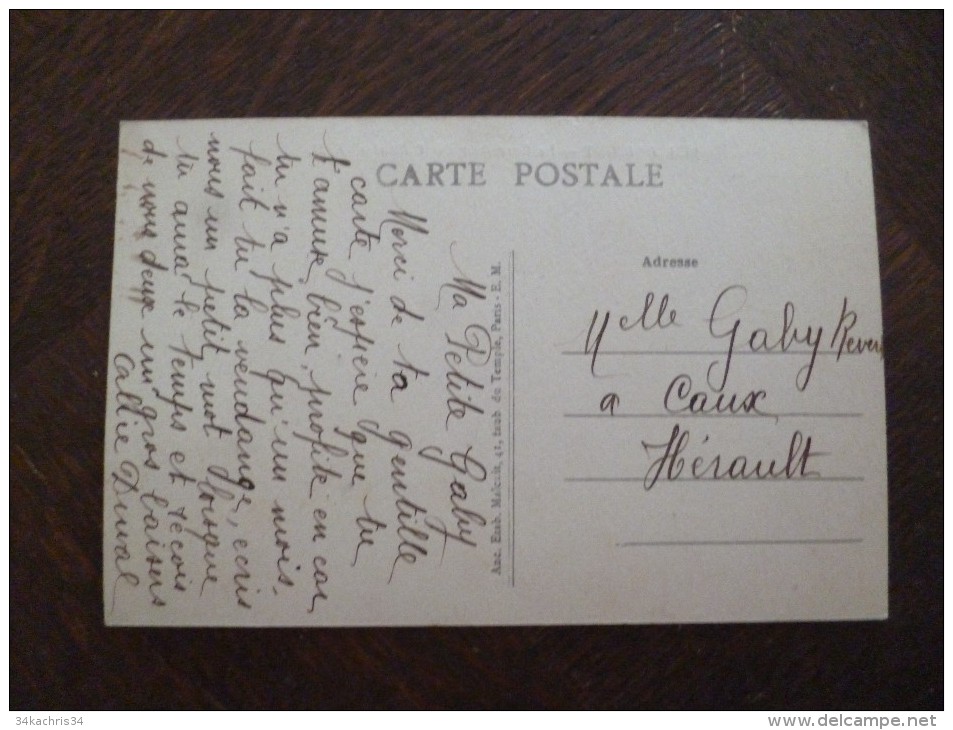 CARTE POSTALE
Ma Petite Gaby
Merci de ta gentille
carte j'espère que tu
t'amuse bien, profite en car
tu n'a plus qu'un mois.
fait tu la vendange, ecris
nous un petit mot lorsque
tu aura le temps et recois
de nous deux un gros baisers
Callie Duval
Anc. Etab. Malcuit, 41, faub. du Temple, Paris - E. M.
Adresse
Mlle Gaby
a Caux
Hérault
34kachris34
www.delcampe.net